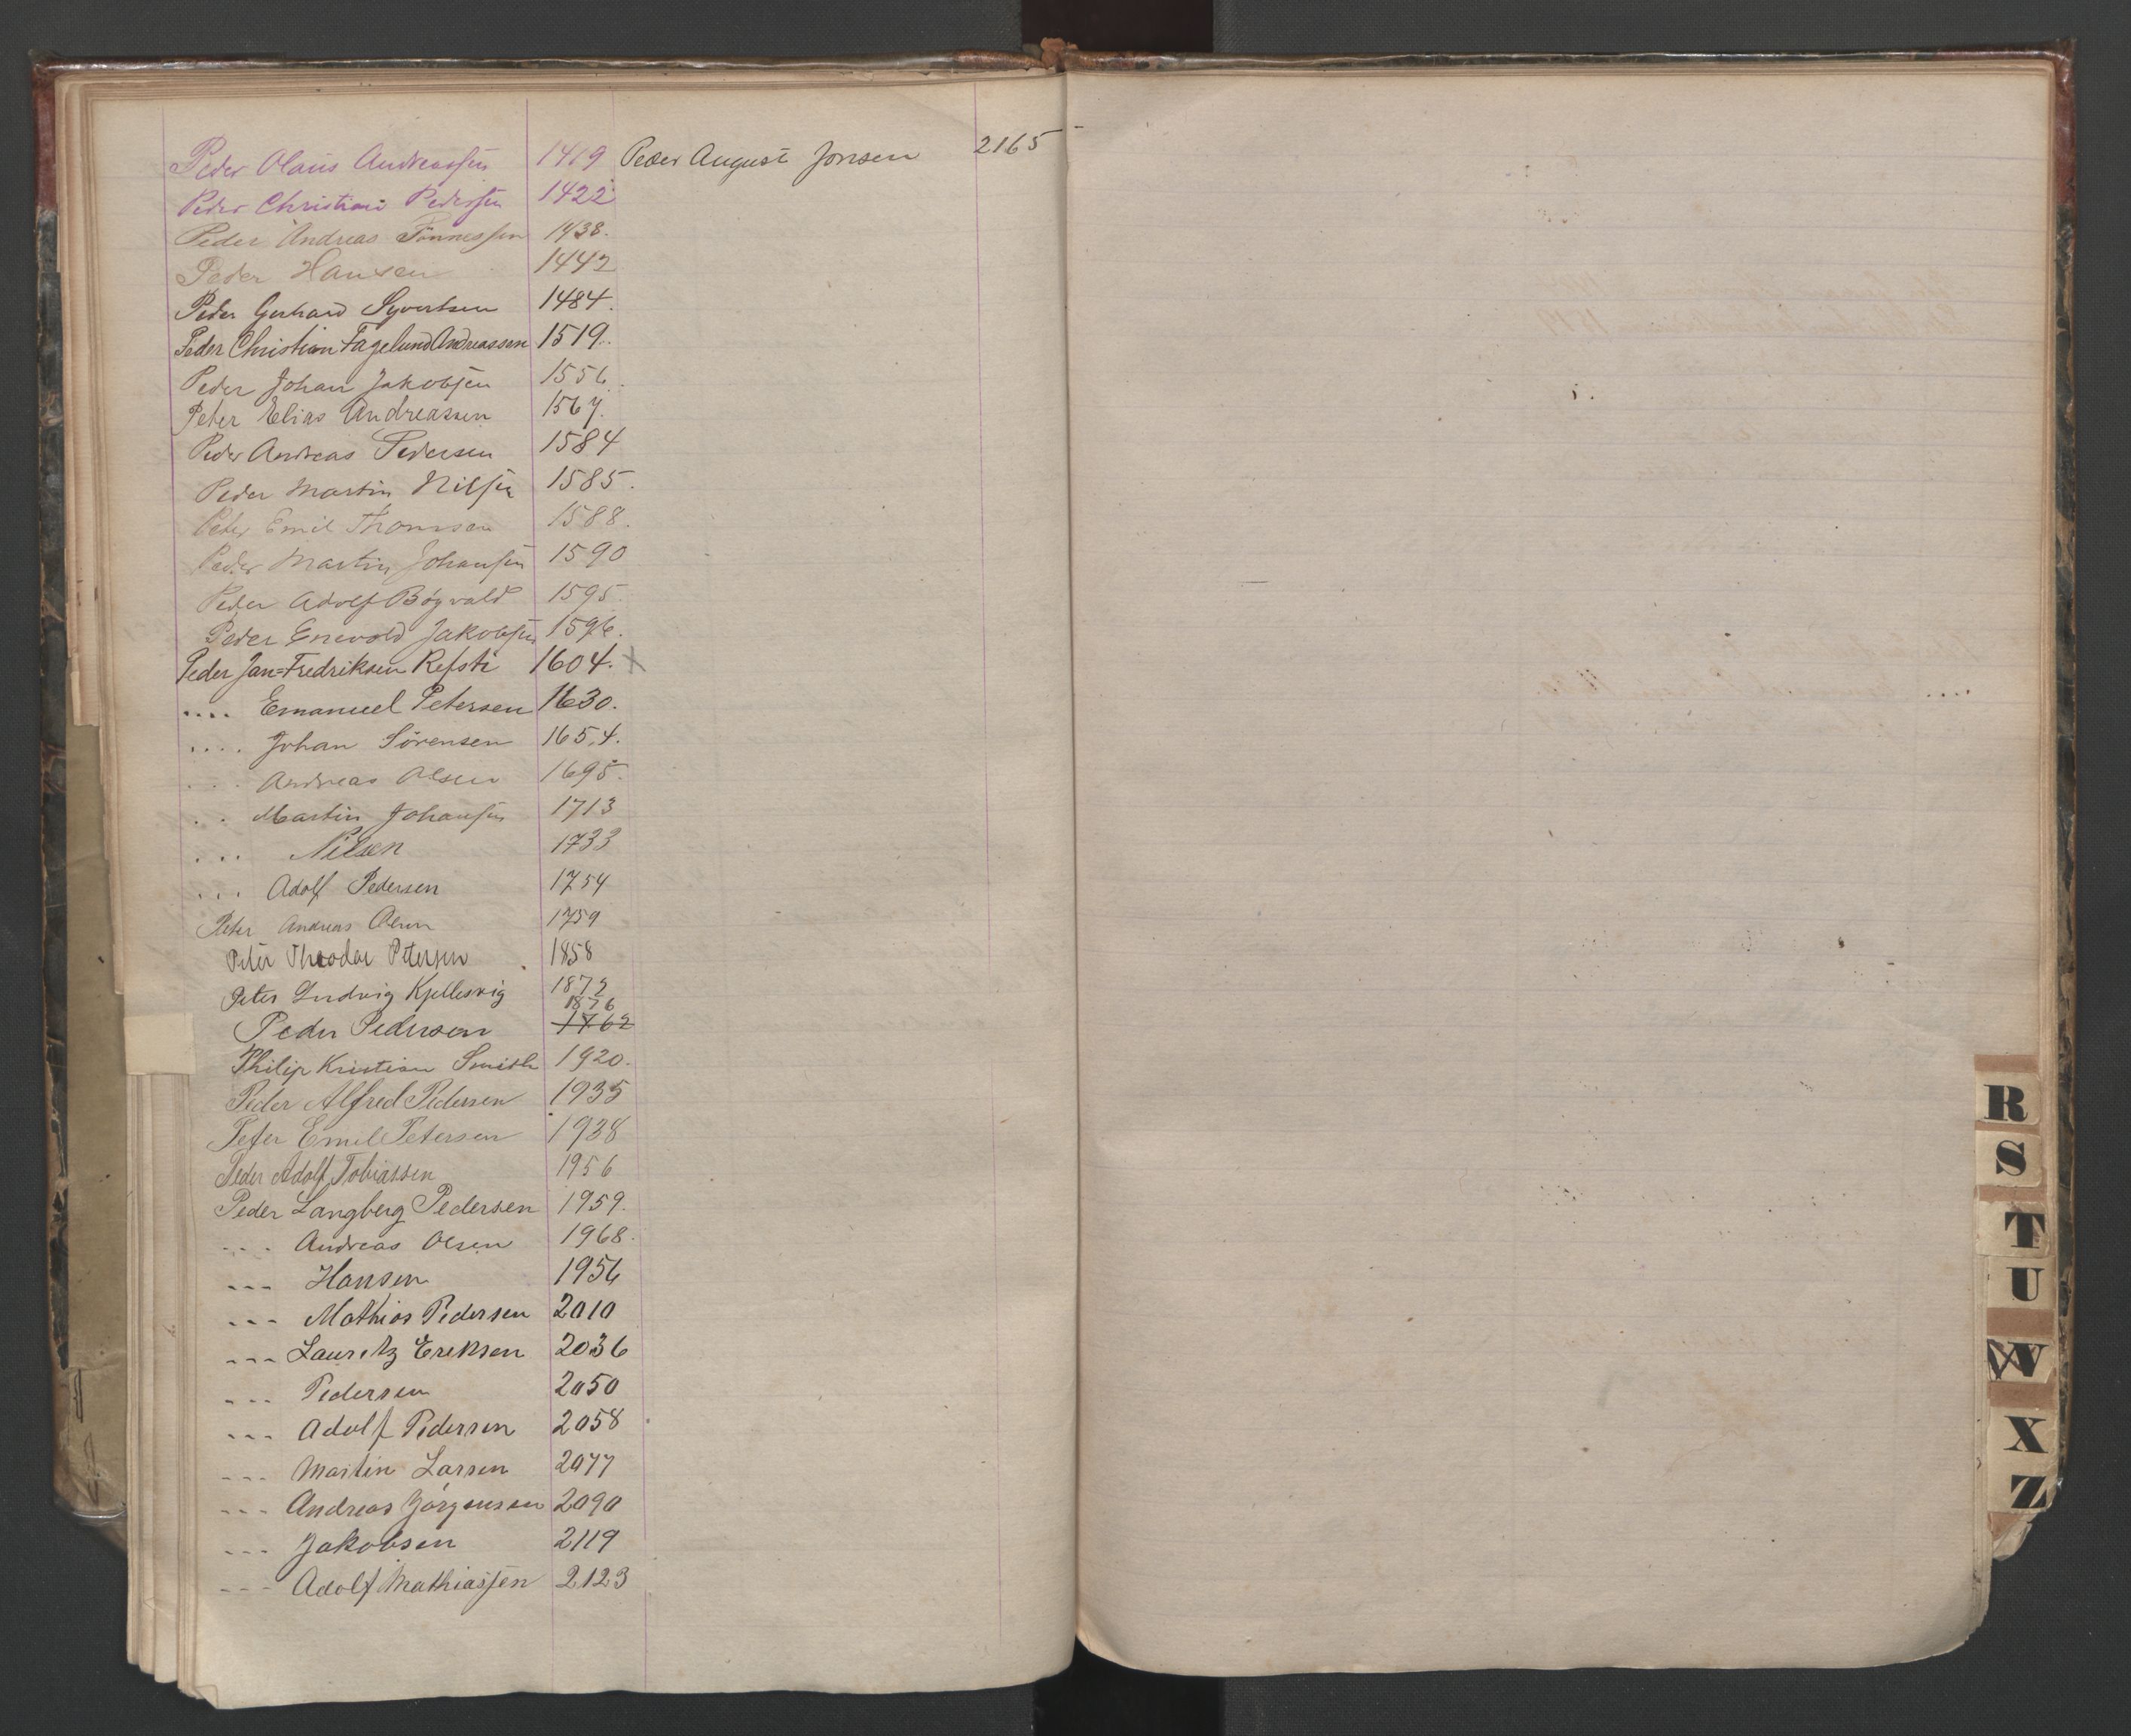 Peder Olaus Andreassen 1419 Peder August Jonsen 2165
Peder Christian Pedersen 1422
Peder Andreas Tönnessen 1438.
Peder Hansen 1442
Peder Gerhard Syvertsen 1484.
Peder Christian Fagelund Andreassen 1519.
Peder Johan Jakobsen 1556.
Peter Elias Andreassen 1567.
Peder Andreas Pedersen 1584
Peder Martin Nilsen 1585.
Peter Emil Thomsen 1588.
Peder Martin Johansen 1590
Peder Adolf Bögvald 1595.
Peder Enevold Jakobsen 1596.
Peder Jan=Fredriksen Refsti 1604. X
.... Emanuel Petersen 1630.
.... Johan Sörensen 1654.
... Andreas Olsen 1695.
... Martin Johansen 1713
... Nilsen 1733
... Adolf Pedersen 1754
Peter Andreas Olsen 1759
Peter Theodor Petersen 1858
Peter Ludvig Kjellesvig 1872
1876
Peder Pedersen 1762
Philip Kristian Smith 1920.
Peder Alfred Pedersen 1935
Peter Emil Petersen 1938
Peder Adolf Tobiassen 1956
Peder Langberg Pedersen 1959.
--- Andreas Olsen 1968.
--- Hansen 1956
--- Mathias Pedersen 2010
--- Lauritz Eriksen 2036
--- Pedersen 2050
--- Adolf Pedersen 2058
--- Martin Larsen 2077
--- Andreas Jörgensen 2090
--- Jakobsen 2119
--- Adolf Mathiassen 2123
R
S
T
U
W
X
Z